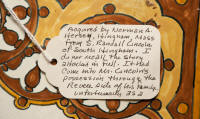 Acquired by Norman A.
Hersey, Hingham, Mass
from S. Randall Lincoln
of South Hingham. I
do not recall the story
Lincoln in full. It had
come into Mr. Lincoln's
possession through the
Revere side of his family.
Unfortunately